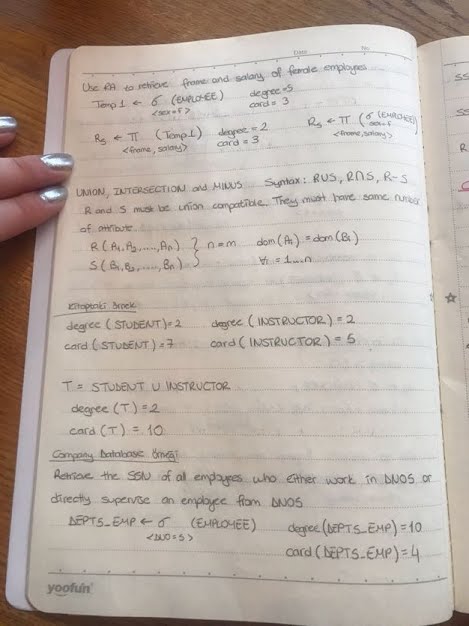 Date No
Use RA to retrieve fname and salary of female employees
Temp1 ← σ (EMPLOYEE) degree=5
<sex=F> card = 3
R5 ← Π (Temp1) degree = 2 R5 ← Π (σ (EMPLOYEE)
<fname, salary> card = 3 <fname, salary> sex=F
UNION, INTERSECTION and MINUS Syntax: RUS, R∩S, R-S
R and S must be union compatible. They must have same number
of attribute.
R(A1, A2, ...., An) } n=m dom(Ai) = dom(Bi)
S(B1, B2, ...., Bn) } ∀i = 1....n
Kitaptaki Örnek
degree(STUDENT)=2 degree(INSTRUCTOR)=2
card(STUDENT)=7 card(INSTRUCTOR)=5
T = STUDENT U INSTRUCTOR
degree(T)=2
card(T)=10
Company Database Örneği
Retrieve the SSN of all employees who either work in DNO5 or
directly supervise an employee from DNO5
DEPT5_EMP ← σ (EMPLOYEE) degree(DEPT5_EMP)=10
<DNO=5> card(DEPT5_EMP)=4
yoofun
SS
SS
R